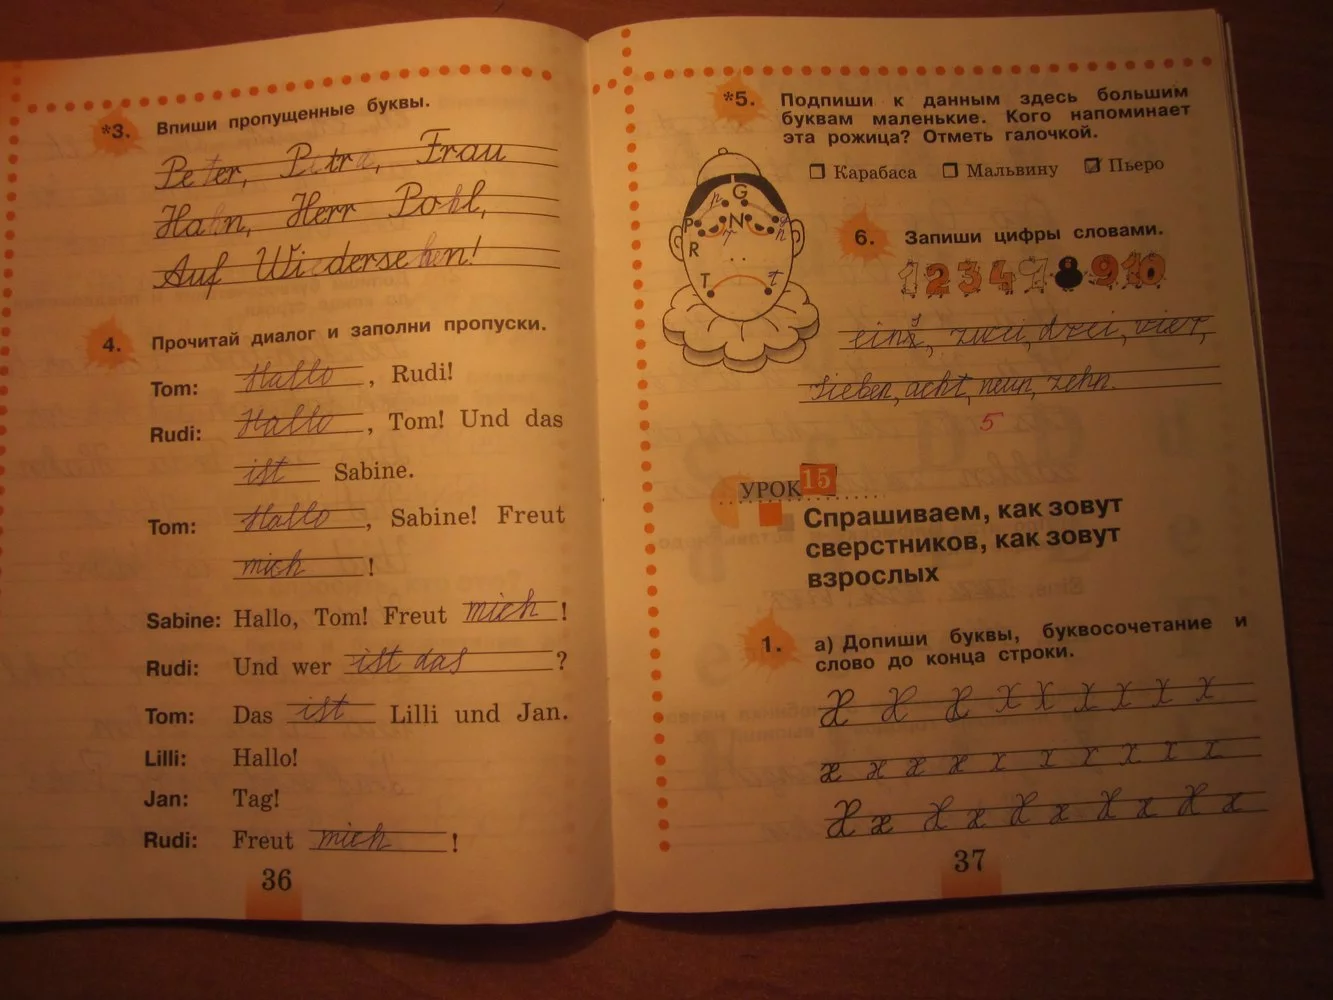 *3. Впиши пропущенные буквы.
Peter, Petra, Frau
Hahn, Herr Pohl,
Auf Wiedersehen!
4. Прочитай диалог и заполни пропуски.
Tom: Hallo, Rudi!
Rudi: Hallo, Tom! Und das
ist Sabine.
Tom: Hallo, Sabine! Freut
mich!
Sabine: Hallo, Tom! Freut mich!
Rudi: Und wer ist das?
Tom: Das ist Lilli und Jan.
Lilli: Hallo!
Jan: Tag!
Rudi: Freut mich!
36
*5. Подпиши к данным здесь большим
буквам маленькие. Кого напоминает
эта рожица? Отметь галочкой.
Карабаса Мальвину Пьеро
G
P N
R
T t
6. Запиши цифры словами.
1 2 3 4 7 8 9 10
eins, zwei, drei, vier,
sieben, acht, neun, zehn.
5
УРОК 15
Спрашиваем, как зовут
сверстников, как зовут
взрослых
1. а) Допиши буквы, буквосочетание и
слово до конца строки.
X X X X X X X X X
x x x x x x x x x x
X x X x X x X x X x
37